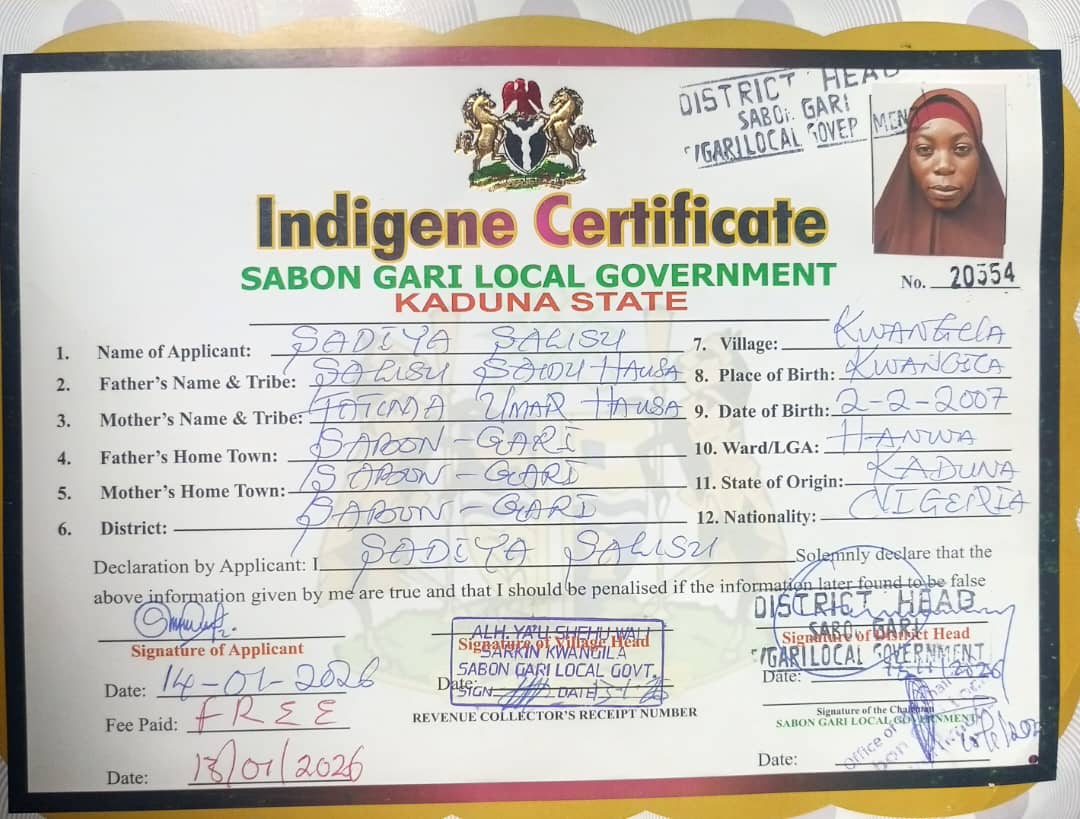 DISTRICT HEAD
SABON GARI
S/GARI LOCAL GOVERNMENT
Indigene Certificate
SABON GARI LOCAL GOVERNMENT
KADUNA STATE
No. 20554
1. Name of Applicant: SADIYA SALISU
2. Father's Name & Tribe: SALISU SAIDU HAUSA
3. Mother's Name & Tribe: UMAR HAUSA
4. Father's Home Town: SABON-GARI
5. Mother's Home Town: SABON-GARI
6. District: SABON-GARI
7. Village: KWANGILA
8. Place of Birth: KWANGILA
9. Date of Birth: 2-2-2007
10. Ward/LGA: HANWA
11. State of Origin: KADUNA
12. Nationality: NIGERIA
Declaration by Applicant: I SADIYA SALISU Solemnly declare that the
above information given by me are true and that I should be penalised if the information later found to be false
Signature of Applicant
Date: 14-01-2026
Fee Paid: FREE
Date: 13/01/2026
ALH. YA'U SHEHU WALI
Signature of Village Head
SARKIN KWANGILA
SABON GARI LOCAL GOVT.
Date:
SIGN DATE
REVENUE COLLECTOR'S RECEIPT NUMBER
DISTRICT HEAD
SABON GARI
Signature of District Head
S/GARI LOCAL GOVERNMENT
Date: 2026
Signature of the Chairman
SABON GARI LOCAL GOVERNMENT
Office of
Date: